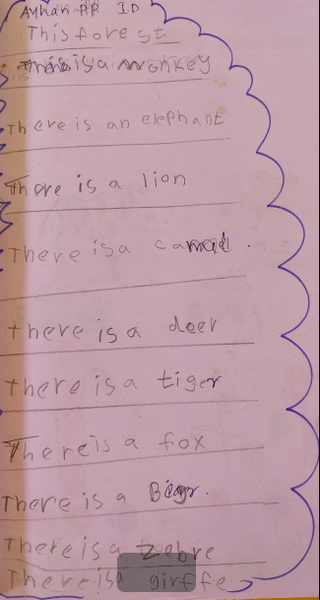 Ayhan AP 1.D
This fore st
There is a monkey
There is an elephant
There is a lion
There is a camel.
there is a deer
there is a tiger
There is a fox
There is a Bear.
There is a Zebre
There is a girffe